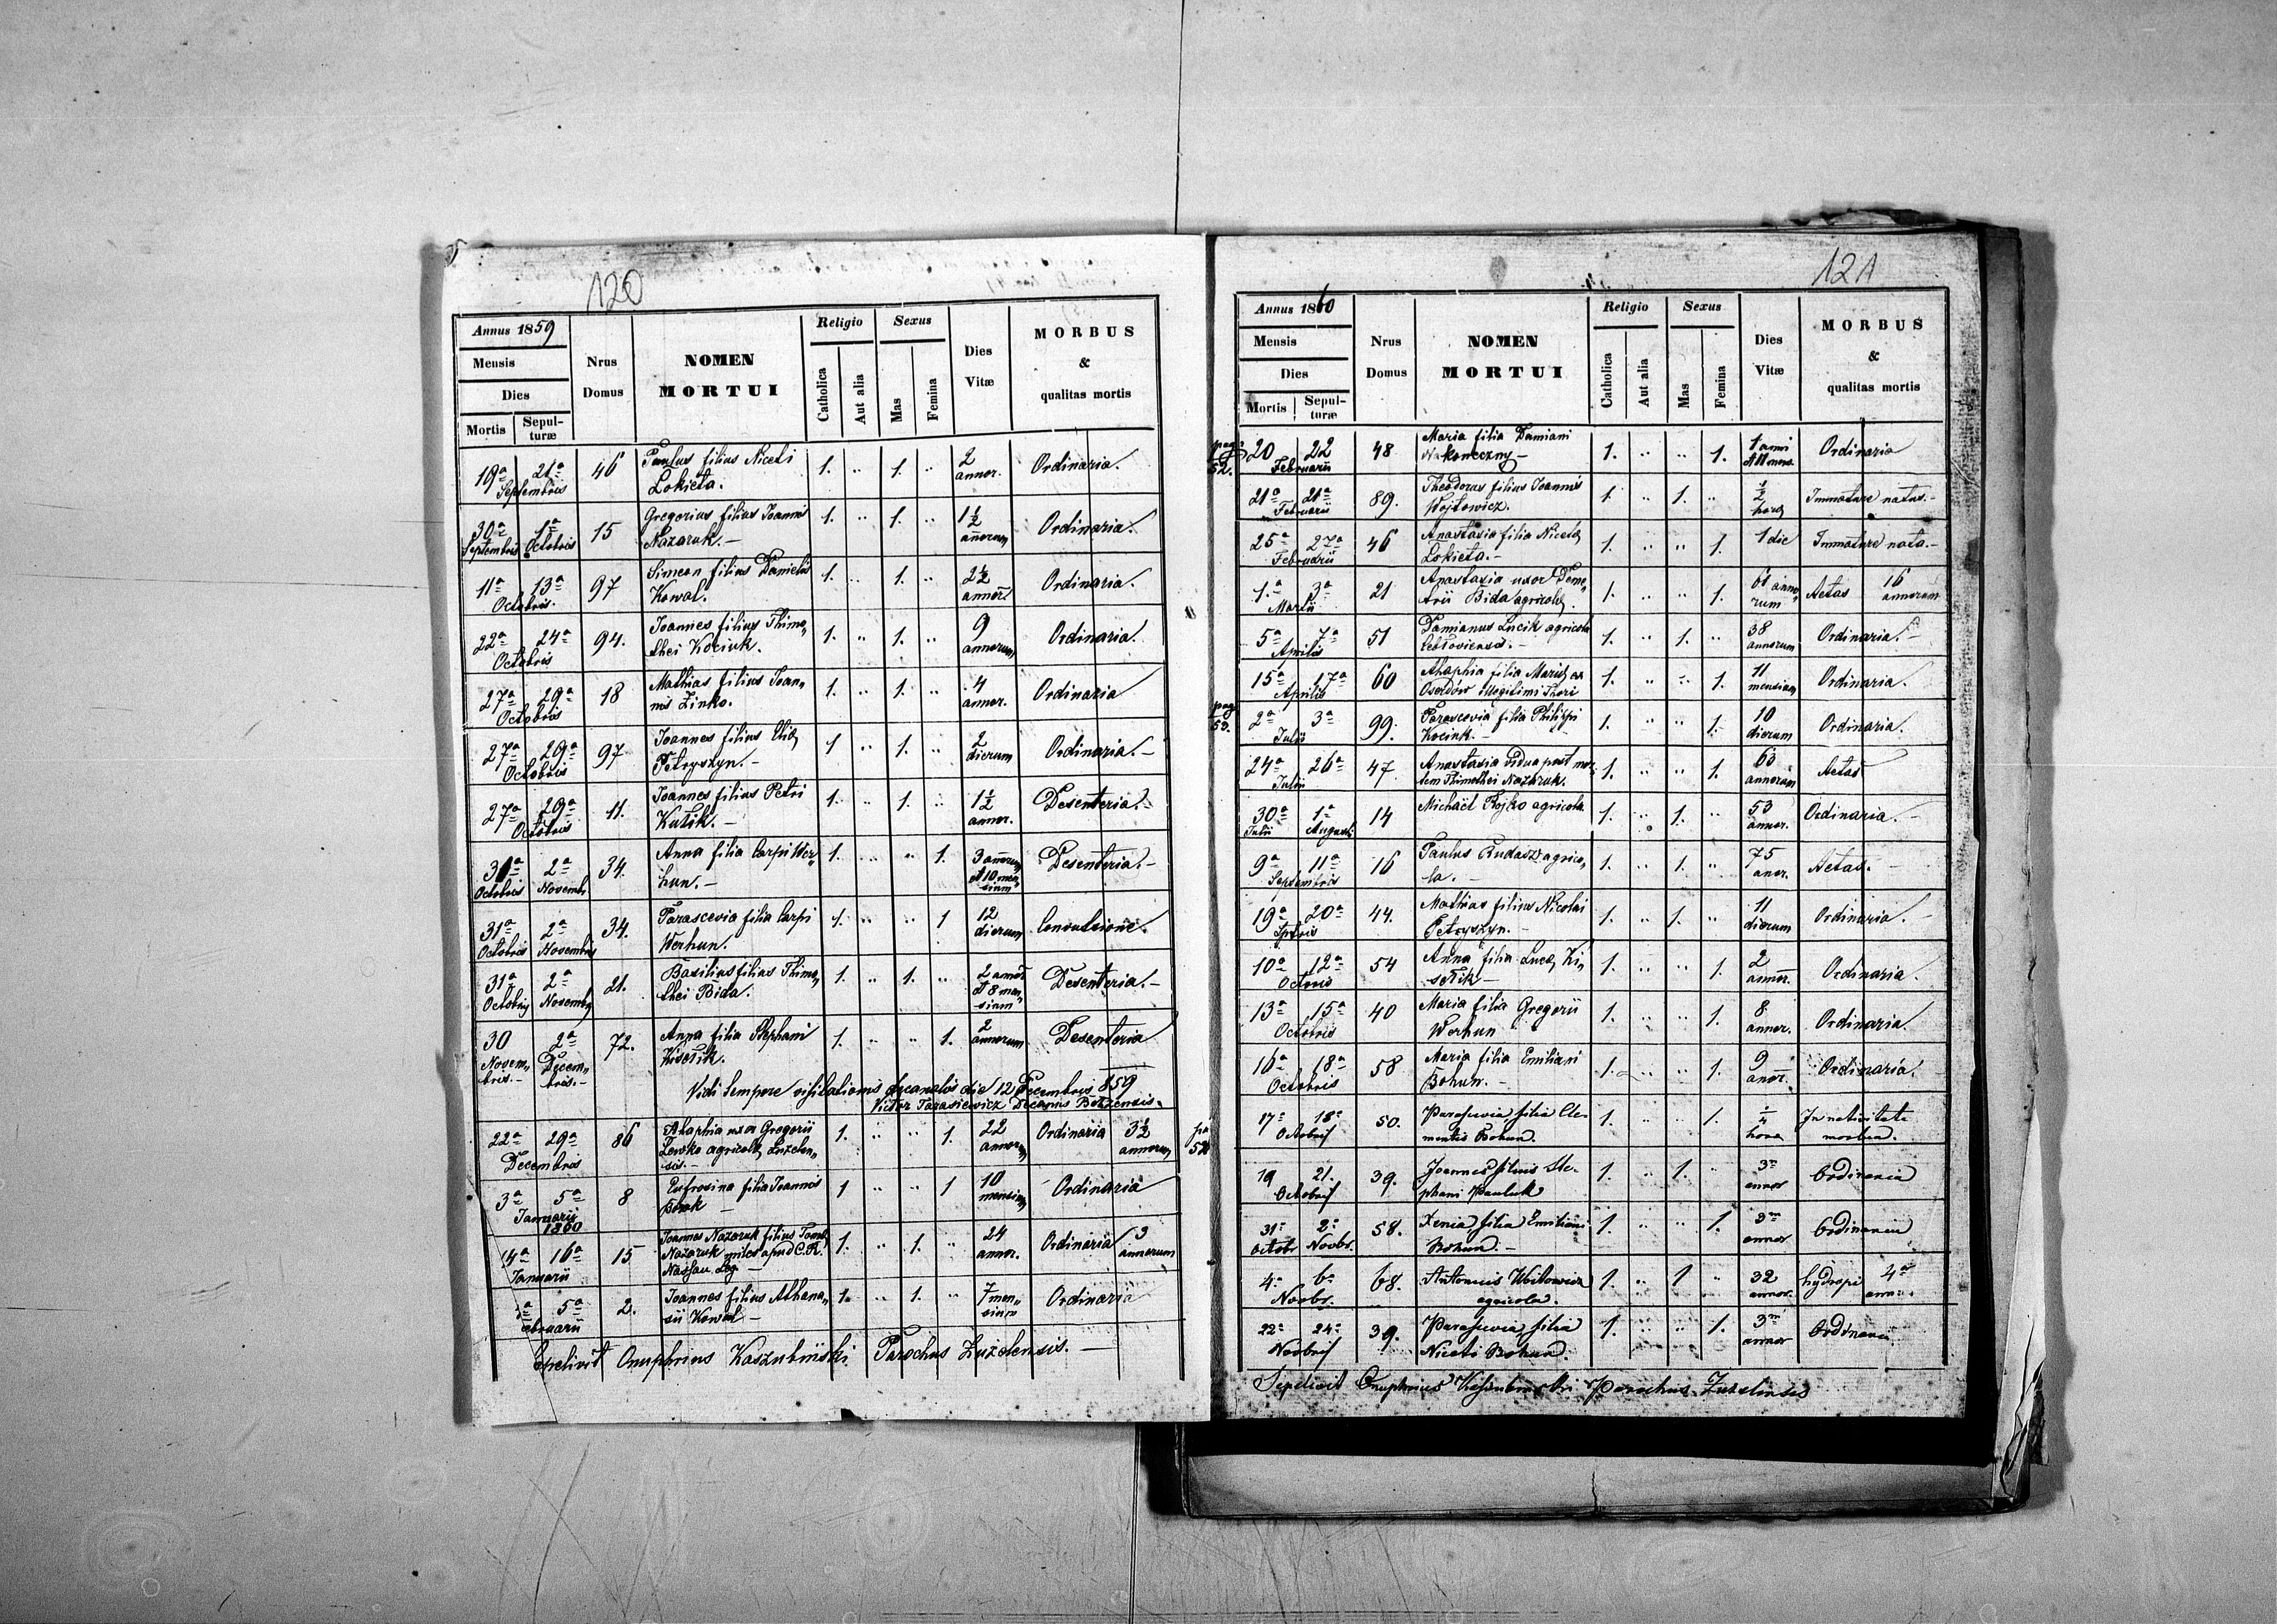 120
Annus 1859
Mensis
Dies
Mortis Sepulturæ
Nrus Domus
NOMEN MORTUI
Religio
Catholica Aut alia
Sexus
Mas Femina
Dies Vitæ
MORBUS & qualitas mortis
19a 21a Septembris 46 Paulus filius Niceti Lokieta. 1. " 1. " 2 annor. Ordinaria.
30a Septembris 1a Octobris 15 Gregorius filius Joannis Nazaruk.- 1. " 1. " 1½ annorum Ordinaria.
11a 13a Octobris. 97 Simeon filius Danielis Kowal. 1. " 1. " 2½ annor Ordinaria.
22a 24a Octobris 94. Joannes filius Thimothei Kociuk. 1. " 1. " 9 annorum Ordinaria.
27a 29a Octobris 18 Mathias filius Joannis Zinko. 1. " 1. " 4 annor. Ordinaria
27a 29a Octobris 97 Joannes filius Eliæ Petryszyn.- 1 " 1. " 2 dierum Ordinaria.-
27a 29a Octobris 11. Joannes filius Petri Kulik.- 1. " 1. " 1½ annor. Desenteria.
31a Octobris 2a Novemb 34. Anna filia Carpi Werhun.- 1. " " 1. 3 annorum et 10 mensium Desenteria.-
31a Octobris 2a Novembris 34. Parascevia filia Carpi Werhun. 1. " " 1 12 dierum Convulsione.
31a 2a 21. Basilius filius Thimothei Bida. 1. " 1. " 2 annor et 8 mensium Desenteria.-
30 Novembris.- 2a Decembris.- 72. Anna filia Stephani Kisolik. 1. " " 1. 2 annorum Desenteria
Vidi tempore visitationis decanalis die 12 Decembris 859
Victor Tarasiewicz Decanus Belzensis.
22a 29a Decembris 86 Ahaphia uxor Gregorii Lewko agricolæ 1. " " 1. 22 annorum Ordinaria 3½ annorum
3a 5a Januarii 1860 8 Eufrosina filia Joannis 1 " " 1 10 mensium Ordinaria
14a 16a Januarii 15 Joannes Nazaruk filius Nazaruk miles apud C.R. Nassau Leg.- 1. " 1. " 24 annor. Ordinaria 3 annorum
5a 2. Joannes filius Athanasii Kowal - 1. " 1. " 7 mensium Ordinaria
Sepelivit Onuphrius Kaszubiński Parochus Żużelensis.-
121
Annus 1860
Mensis
Dies
Mortis Sepulturæ
Nrus Domus
NOMEN MORTUI
Religio
Catholica Aut alia
Sexus
Mas Femina
Dies Vitæ
MORBUS & qualitas mortis
pag: 52. 20 22 Februarii 48 Maria filia Damiani Nakoneczny- 1. " " 1. 1 anni et 11 mens. Ordinaria
21a 21a Februarii 89. Theodorus filius Joannis Wojtowicz. 1. " 1. " ½ horæ Immature natus.-
25a 27a Februarii 46 Anastasia filia Nicetæ Lokieta.- 1. " " 1. 1 die Immature nata.-
1.a 3a Martii 21 Anastasia uxor Demetrii Bida agricolæ. 1. " " 1. 61 annorum Aetas 16 annorum
5a 7a Aprilis 51 Damianus Lucik agricola 1. " 1. " 38 annorum Ordinaria.-
15a 17a Aprilis 60 Ahaphia filia Mariæ ex Oserdów illegitimi Thori 1. " " 1. 11 mensium Ordinaria.
pag 53. 2a 3a Julii 99. Parascevia filia Philippi Kociuk.- 1. " " 1. 10 dierum Ordinaria.
24a 26a Julii 47 Anastasia vidua post mortem Thimothei Nazaruk. 1. " " 1. 63 annorum Aetas
30a Julii 1a Augusti 14 Michael Rojko agricola 1. " 1. " 53 annor. Ordinaria.-
9a 11a Septembris 16 Paulus Rudasz agricola.- 1. " 1. " 75 anor. Aetas.-
19a 20a 44. Mathias filius Nicolai Petryszyn.- 1. " 1. " 11 dierum Ordinaria.-
10a 12a 54 Anna filia Lucæ Kisolik- 1. " " 1. 2 annor. Ordinaria.
13a 15a Octobris 40 Maria filia Gregorii Werhun 1. " " 1. 8 annor. Ordinaria.
16a 18a Octobris 58 Maria filia Emiliani Bohun.- 1. " " 1. 9 anor. Ordinaria.
17a 18a Octobris 50. Parascevia filia Clementis Bohun. 1. " " 1. hora In nativitate mortua.
19 21. Octobris 39. Joannes filius Stephani Pauluk 1. " 1. " 3 annor Ordinaria
31a Octobr 2a Novbr. 58. Xenia filia Emiliani Bohun.- 1. " " 1. 3 annor Ordinaria
4a 6a Novbr. 68. Antonius agricola. 1. " 1 " 32 annor. hydropi 4
22a 24a Novbris 39. Parascevia filia Niceti Bohun. 1. " " 1. 3 annor Ordinaria
Sepelivit Onuphrius Parochus